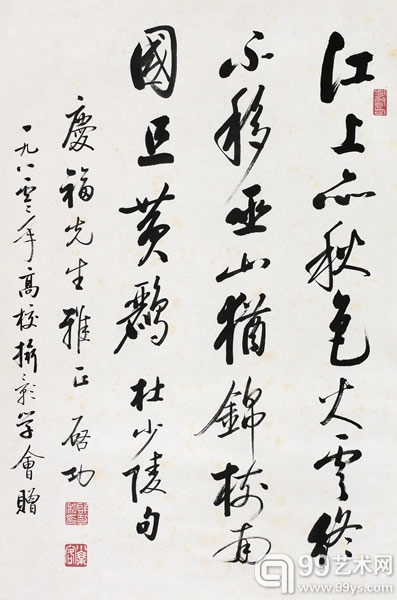 江上亦秋色火雲終
不移巫山猶錦樹南
國且黃鸝 杜少陵句
慶福先生雅正 启功
一九八零年高校攝影学會贈
99艺术网
www.99ys.com